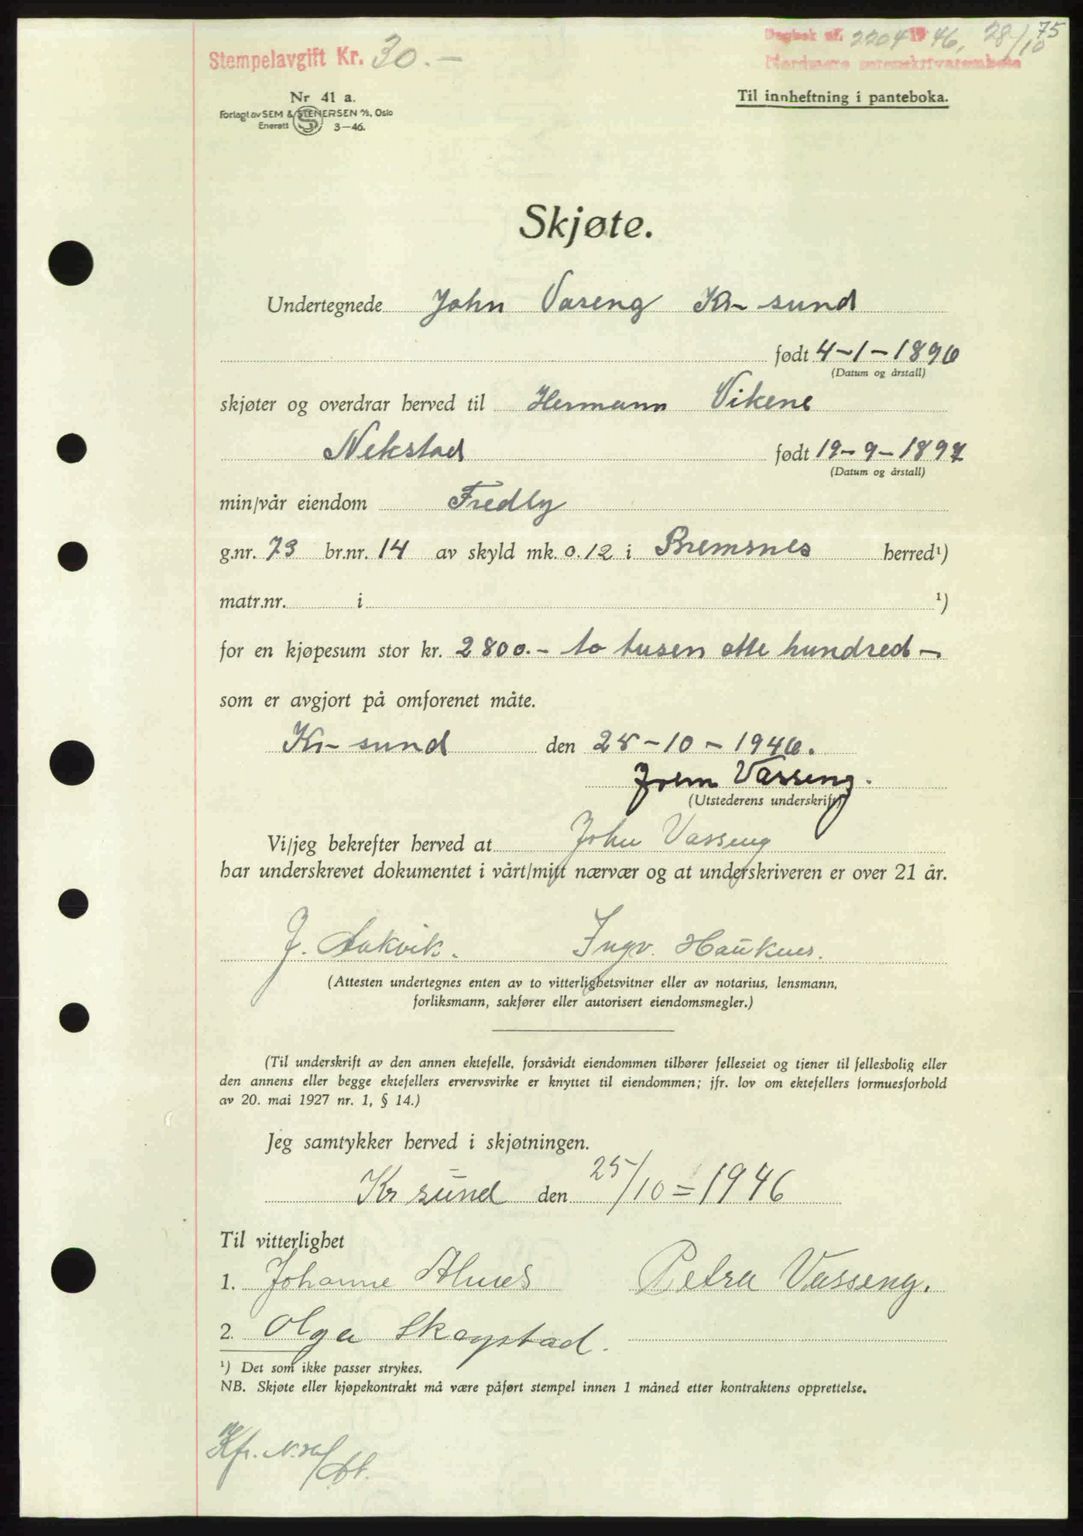 75
Stempelavgift Kr. 30.—
Dagbok nr. 2204 1946, 28/10
Nordmøre sorenskriverembete
Nr 41 a.
Forlagt av SEM & STENERSEN A/S, Oslo
Enerett 3—46.
Til innheftning i panteboka.
Skjøte.
Undertegnede John Vaseng Kr-sund
født 4-1-1896
(Datum og årstall)
skjøter og overdrar herved til Hermann Vikene
Nekstad født 19-9-1897
(Datum og årstall)
min/vår eiendom Fredly
g.nr. 73 br.nr. 14 av skyld mk. 0.12 i Bremsnes herred¹)
matr.nr. i ¹)
for en kjøpesum stor kr. 2800.- to tusen otte hundred -
som er avgjort på omforenet måte.
Kr-sund den 25-10-1946.
John Vasseng.
(Utstederens underskrift)
Vi/jeg bekrefter herved at John Vasseng
har underskrevet dokumentet i vårt/mitt nærvær og at underskriveren er over 21 år.
J. Aakvik. Ingv. Hauknes.
(Attesten undertegnes enten av to vitterlighetsvitner eller av notarius, lensmann,
forliksmann, sakfører eller autorisert eiendomsmegler.)
(Til underskrift av den annen ektefelle, forsåvidt eiendommen tilhører felleseiet og tjener til fellesbolig eller
den annens eller begge ektefellers ervervsvirke er knyttet til eiendommen; jfr. lov om ektefellers formuesforhold
av 20. mai 1927 nr. 1, § 14.)
Jeg samtykker herved i skjøtningen.
Kr sund den 25/10 = 1946
Til vitterlighet
1. Johanne Alnes Petra Vasseng.
2. Olga Skogstad.
¹) Det som ikke passer strykes.
NB. Skjøte eller kjøpekontrakt må være påført stempel innen 1 måned etter kontraktens opprettelse.